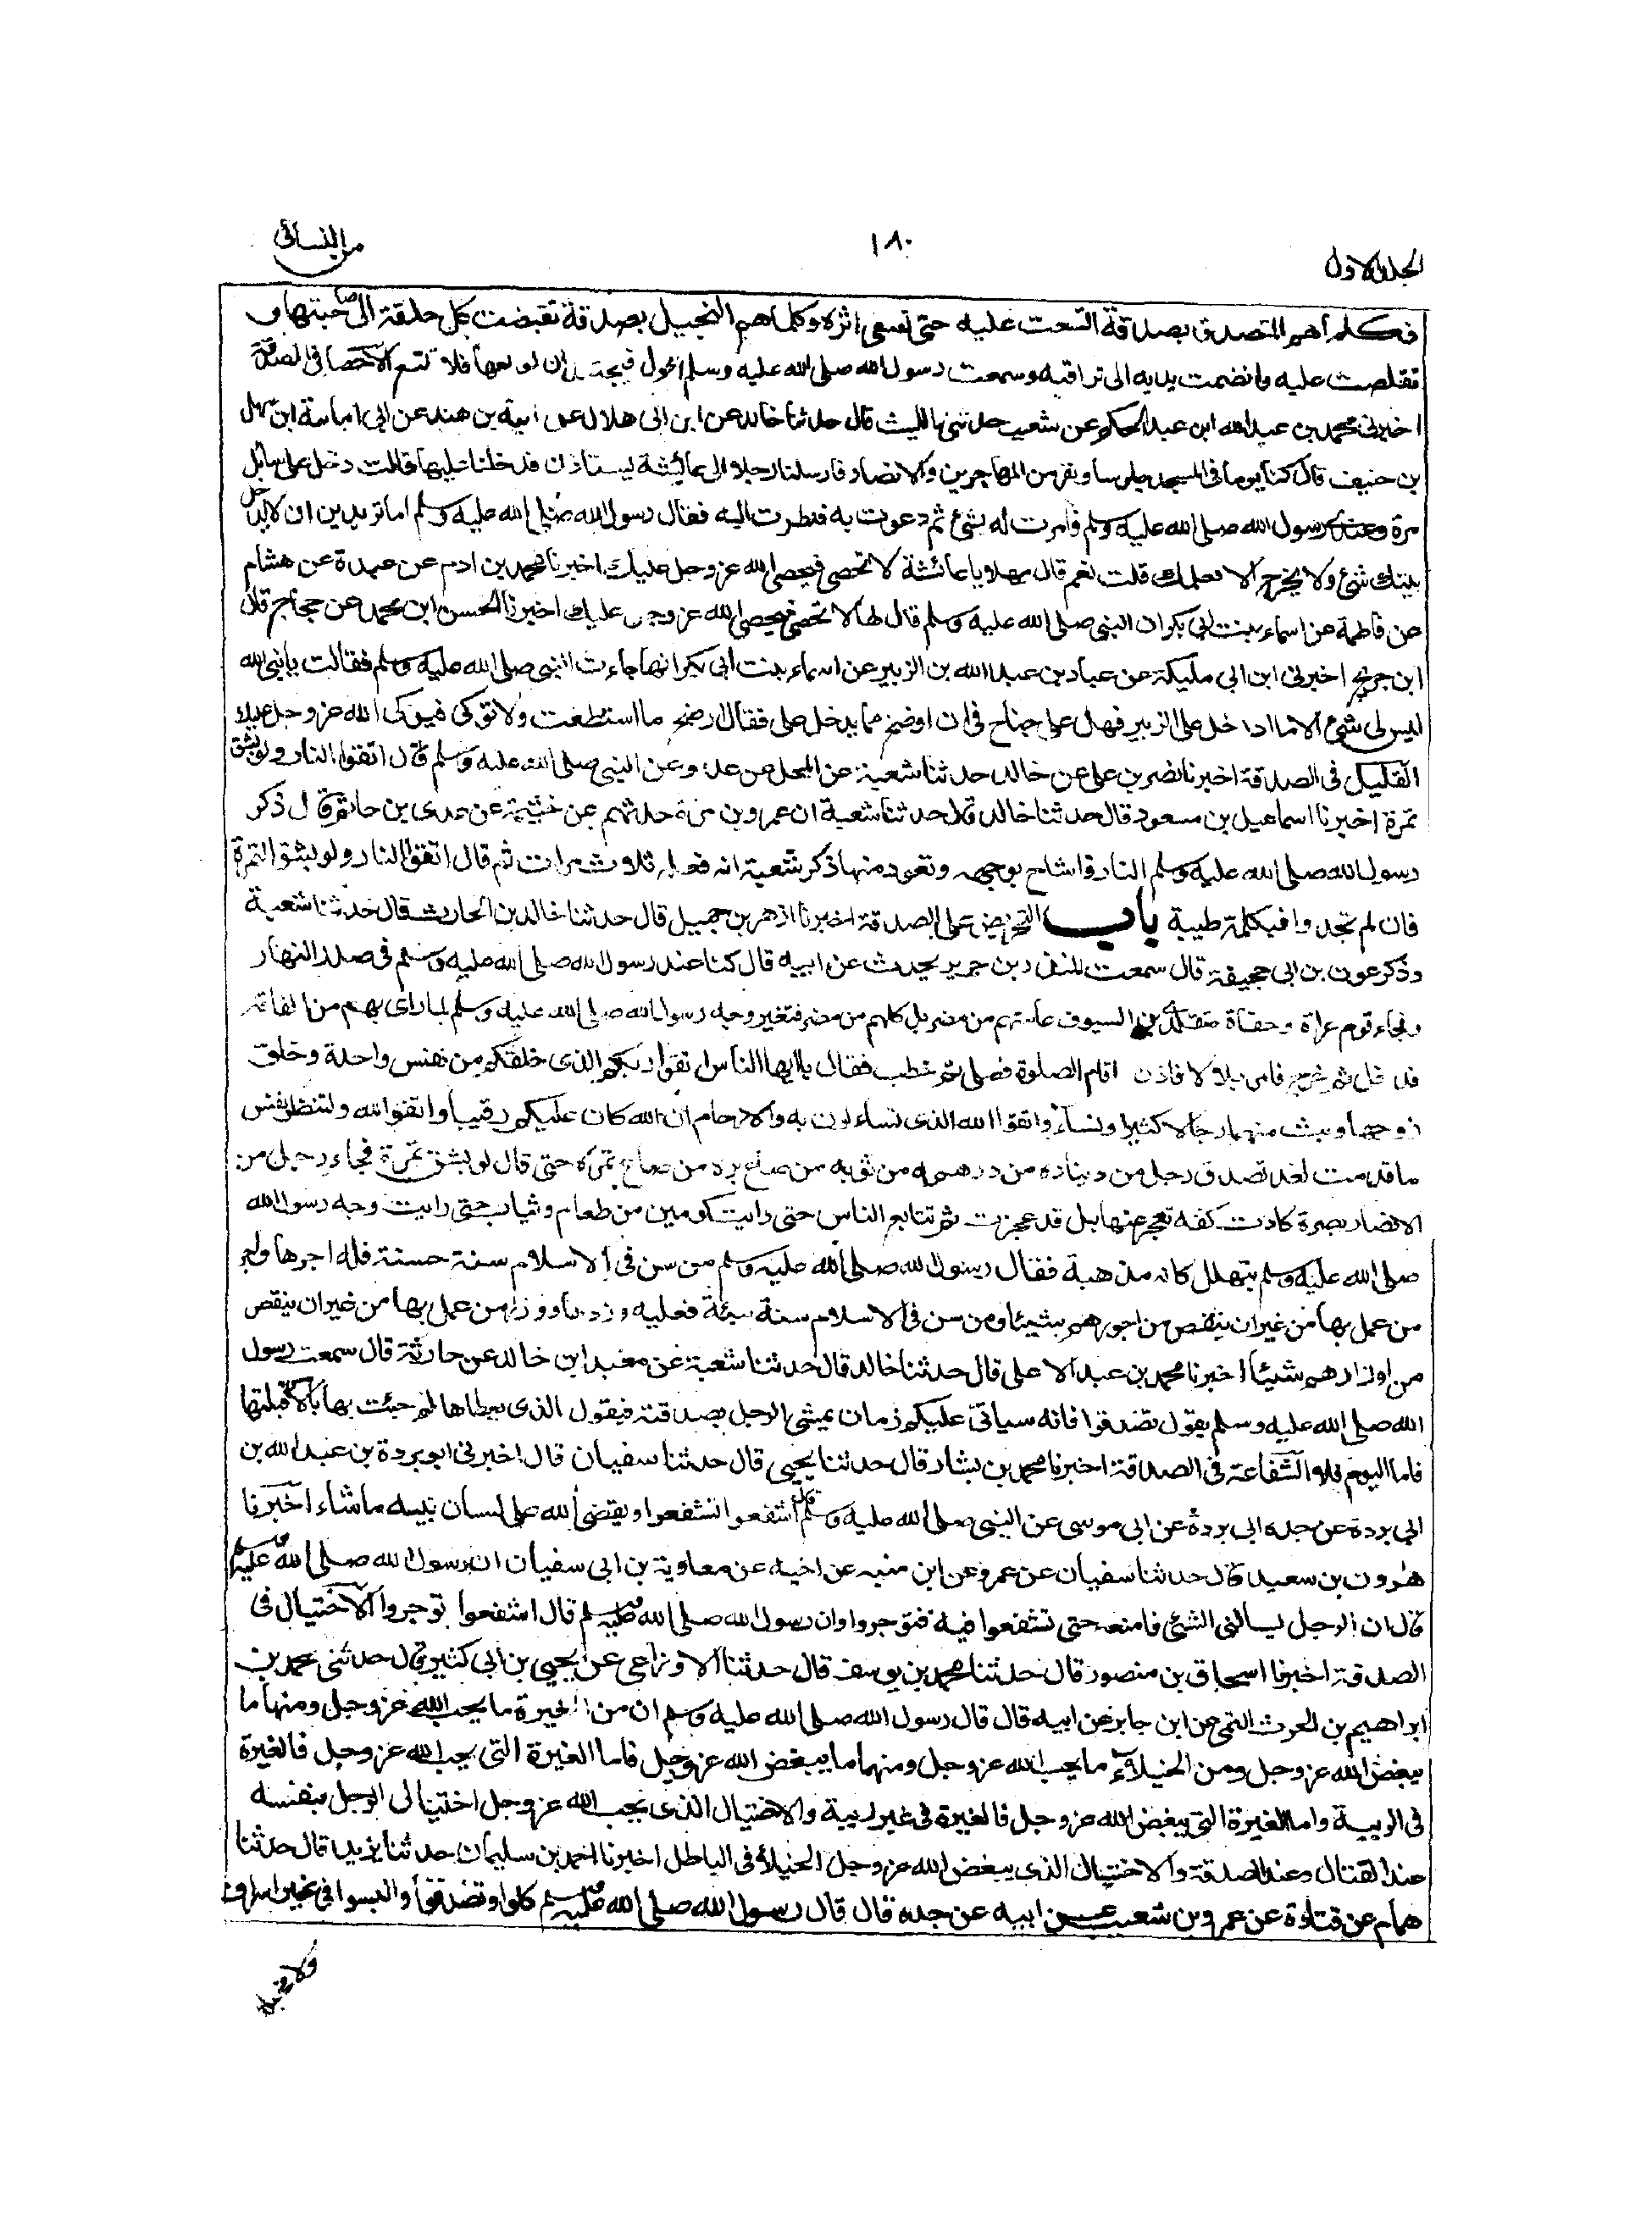 الجلد الاول
١٨٠
من النسائى
فكلما هم المتصدق بصدقة اتسعت عليه حتى تعفى اثره وكلما هم البخيل بصدقة تقبضت كل حلقة الى صاحبتها و
تقلصت عليه وانضمت يداه الى تراقيه وسمعت رسول الله صلى الله عليه وسلم يقول فيجتهد ان يوسعها فلا تتسع الاحصاء فى الصدقة
اخبرنى محمد بن عبد الله ابن عبد الحكم عن شعيب حدثنى الليث قال حدثنا خالد عن ابن ابى هلال عن امية بن هند عن ابى امامة ابن سهل
بن حنيف قال كنا يوما فى المسجد جلوسا ونفر من المهاجرين والانصار فارسلنا رجلا الى عائشة ليستاذن فدخلنا عليها قالت دخل على سائل
مرة وعندى رسول الله صلى الله عليه وسلم فامرت له بشئ ثم دعوت به فنظرت اليه فقال رسول الله صلى الله عليه وسلم اما تريدين ان لا يدخل
بيتك شئ ولا يخرج الا بعلمك قلت نعم قال مهلا يا عائشة لا تحصى فيحصى الله عز وجل عليك اخبرنا محمد بن ادم عن عبدة عن هشام
عن فاطمة عن اسماء بنت ابى بكر ان النبى صلى الله عليه وسلم قال لها لا تحصى فيحصى الله عز وجل عليك اخبرنا الحسن ابن محمد عن حجاج قال
ابن جريج اخبرنى ابن ابى مليكة عن عباد بن عبد الله بن الزبير عن اسماء بنت ابى بكر انها جاءت النبى صلى الله عليه وسلم فقالت يا نبى الله
ليس لى شئ الا ما ادخل على الزبير فهل على جناح فى ان ارضخ مما يدخل على فقال ارضخى ما استطعت ولا توكى فيوكى الله عز وجل عليك
القليل فى الصدقة اخبرنا نصر بن على عن خالد حدثنا شعبة عن المحل عن عدى عن النبى صلى الله عليه وسلم قال اتقوا النار ولو بشق
تمرة اخبرنا اسماعيل بن مسعود قال حدثنا خالد قال حدثنا شعبة ان عمرو بن مرة حدثهم عن خيثمة عن عدى بن حاتم قال ذكر
رسول الله صلى الله عليه وسلم النار فاشاح بوجهه وتعوذ منها ذكر شعبة انه فعله ثلاث مرات ثم قال اتقوا النار ولو بشق التمرة
فان لم تجدوا فبكلمة طيبة باب التحريض على الصدقة اخبرنا ازهر بن جميل قال حدثنا خالد بن الحارث قال حدثنا شعبة
وذكر عون بن ابى جحيفة قال سمعت المنذر بن جرير يحدث عن ابيه قال كنا عند رسول الله صلى الله عليه وسلم فى صدر النهار
فجاء قوم عراة وحفاة متقلدين السيوف عامتهم من مضر بل كلهم من مضر فتغير وجه رسول الله صلى الله عليه وسلم لما راى بهم من الفاقة
فدخل ثم خرج فامر بلالا فاذن اقام الصلوة فصلى ثم خطب فقال يا ايها الناس اتقوا ربكم الذى خلقكم من نفس واحدة وخلق
زوجها وبث منهما رجالا كثيرا ونساء واتقوا الله الذى تساءلون به والارحام ان الله كان عليكم رقيبا واتقوا الله ولتنظر نفس
ما قدمت لغد تصدق رجل من ديناره من درهمه من ثوبه من صاع بره من صاع تمره حتى قال لو بشق تمرة فجاء رجل من
الانصار بصرة كادت كفه تعجز عنها بل قد عجزت ثم تتابع الناس حتى رايت كومين من طعام وثياب حتى رايت وجه رسول الله
صلى الله عليه وسلم يتهلل كانه مذهبة فقال رسول الله صلى الله عليه وسلم من سن فى الاسلام سنة حسنة فله اجرها واجر
من عمل بها من غير ان ينقص من اجورهم شيئا ومن سن فى الاسلام سنة سيئة فعليه وزرها ووزر من عمل بها من غير ان ينقص
من اوزارهم شيئا اخبرنا محمد بن عبد الاعلى قال حدثنا خالد قال حدثنا شعبة عن معبد ابن خالد عن حارثة قال سمعت رسول
الله صلى الله عليه وسلم يقول تصدقوا فانه سياتى عليكم زمان يمشى الرجل بصدقته فيقول الذى يعطاها لو جئت بها بالامس قبلتها
فاما اليوم فلا الشفاعة فى الصدقة اخبرنا محمد بن بشار قال حدثنا يحيى قال حدثنا سفيان قال اخبرنى ابو بردة بن عبد الله بن
ابى بردة عن جده ابى بردة عن ابى موسى عن النبى صلى الله عليه وسلم قال اشفعوا تشفعوا ويقضى الله على لسان نبيه ما شاء اخبرنا
هرون بن سعيد قال حدثنا سفيان عن عمرو عن ابن منبه عن اخيه عن معاوية بن ابى سفيان ان رسول الله صلى الله عليه وسلم
قال ان الرجل ليسالنى الشئ فامنعه حتى تشفعوا فيه فتوجروا وان رسول الله صلى الله عليه وسلم قال اشفعوا توجروا الاختيال فى
الصدقة اخبرنا اسحاق بن منصور قال حدثنا محمد بن يوسف قال حدثنا الاوزاعى عن يحيى بن ابى كثير قال حدثنى محمد بن
ابراهيم بن الحرث التيمى عن ابن جابر عن ابيه قال قال رسول الله صلى الله عليه وسلم ان من الغيرة ما يحب الله عز وجل ومنها ما
يبغض الله عز وجل ومن الخيلاء ما يحب الله عز وجل ومنها ما يبغض الله عز وجل فاما الغيرة التى يحب الله عز وجل فالغيرة
فى الريبة واما الغيرة التى يبغض الله عز وجل فالغيرة فى غير ريبة والاختيال الذى يحب الله عز وجل اختيال الرجل بنفسه
عند القتال وعند الصدقة والاختيال الذى يبغض الله عز وجل الخيلاء فى الباطل اخبرنا احمد بن سليمان حدثنا يزيد قال حدثنا
همام عن قتادة عن عمرو بن شعيب عن ابيه عن جده قال قال رسول الله صلى الله عليه وسلم كلوا وتصدقوا والبسوا فى غير اسراف
ولا مخيلة